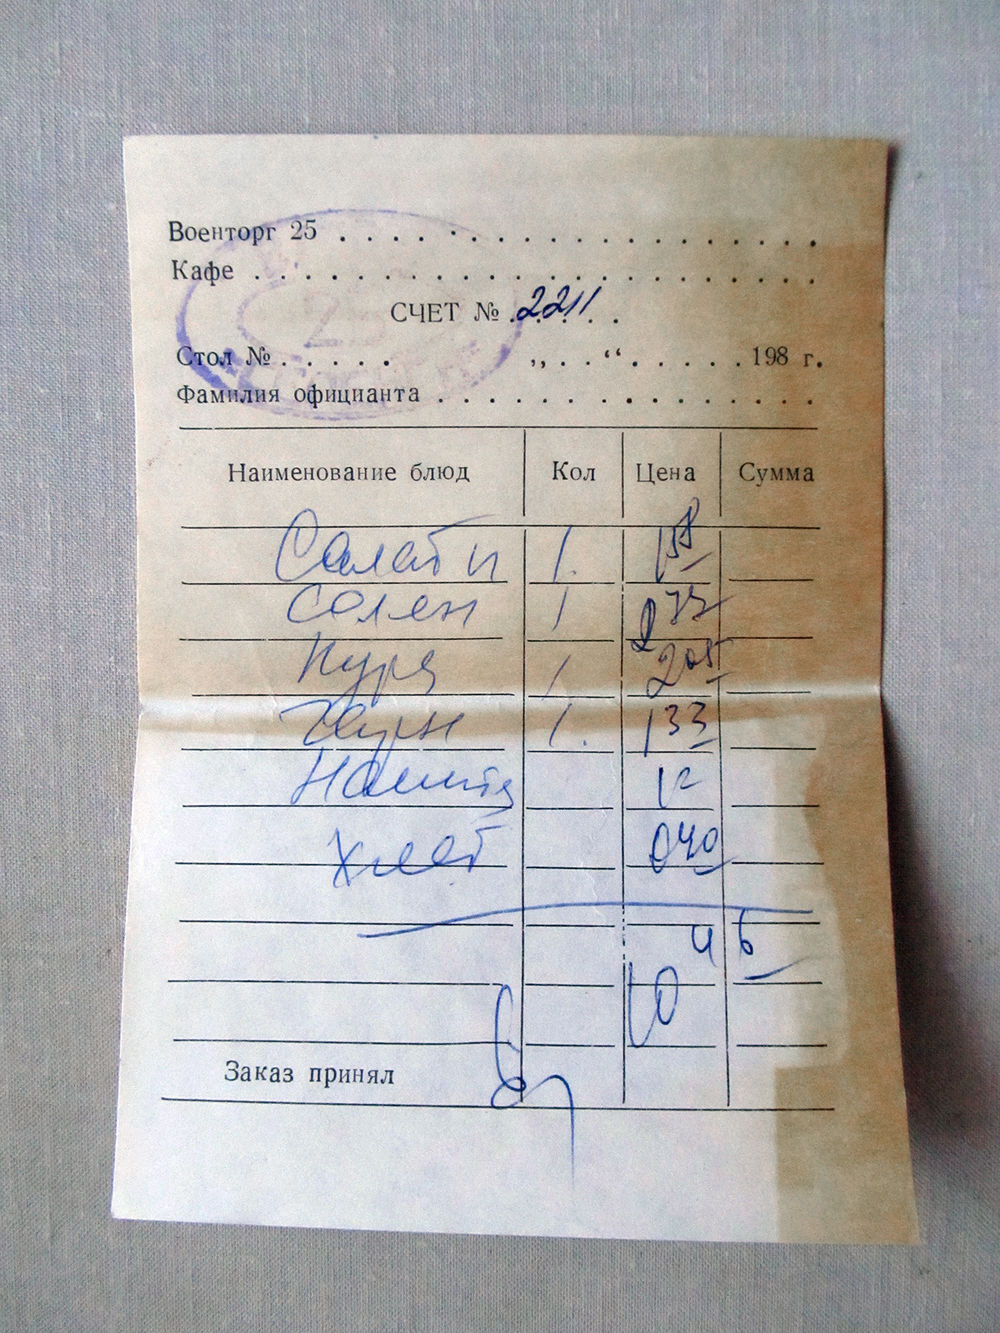 Военторг 25 . . . . . . . . . . . . . . . . . .
Кафе . . . . . . . . . . . . . . . . . . . .
СЧЕТ № 2211
Стол № . . . . . „ . . “ . . . . . . 198 г.
Фамилия официанта . . . . . . . . . . . . . .
Наименование блюд Кол Цена Сумма
Салат 1. 1 58
Солен 1
Кура 1. 2 05
1. 1 33
1
Хлеб 0 40
10 46
Заказ принял